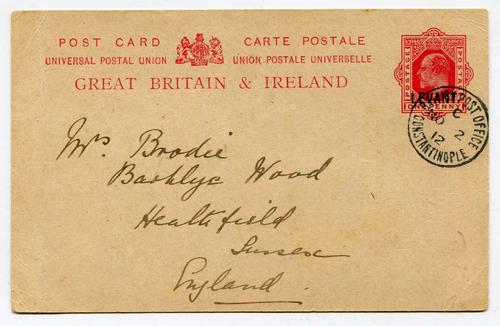 POST CARD CARTE POSTALE
UNIVERSAL POSTAL UNION UNION POSTALE UNIVERSELLE
GREAT BRITAIN & IRELAND
POSTAGE POSTAGE
ONE PENNY
LEVANT
POST OFFICE
C
NO 2
12
CONSTANTINOPLE
Mrs Brodie
Wood
Heathfield
Sussex
England.